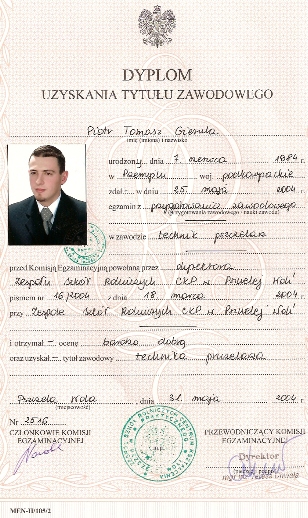 DYPLOM
UZYSKANIA TYTUŁU ZAWODOWEGO
Piotr Tomasz
imię (imiona) i nazwisko
urodzony dnia 7 1984
w Przemyślu woj. podkarpackie
zdał w dniu 25 maja 2004
egzamin z przygotowania zawodowego
(przygotowania zawodowego / nauki zawodu)
w zawodzie technik pszczelarz
przed Komisją Egzaminacyjną powołaną przez dyrektora
Zespołu Szkół Rolniczych CKP w Pszczelej Woli
pismem nr 16/2004 z dnia 18 marca 2004
przy Zespole Szkół Rolniczych CKP w Pszczelej Woli
i otrzymał ocenę bardzo dobrą
oraz uzyskał tytuł zawodowy technika pszczelarza
Pszczela Wola, dnia 31. maja 2004
(miejscowość)
Nr 2516
CZŁONKOWIE KOMISJI
EGZAMINACYJNEJ
PRZEWODNICZĄCY KOMISJI
EGZAMINACYJNEJ
Dyrektor
MEN-II/105/2